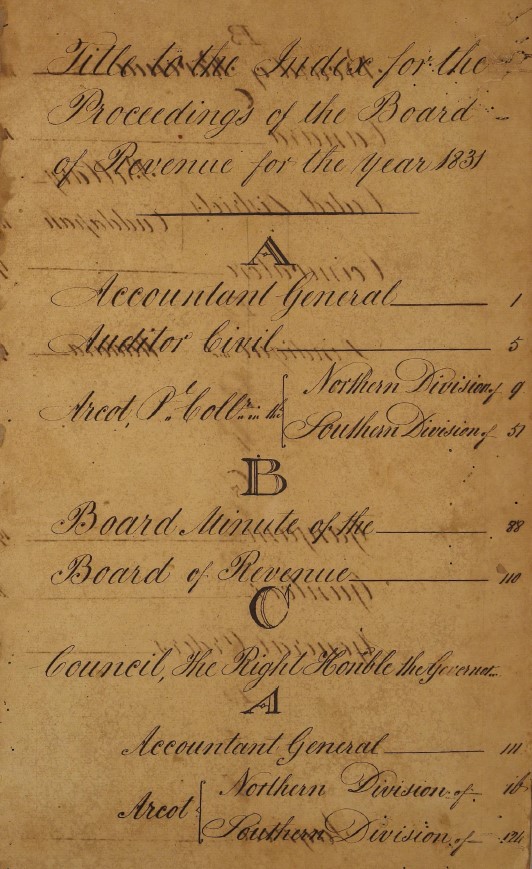 Title to the Index for the
Proceedings of the Board
of Revenue for the year 1831
A
Accountant General 1
Auditor Civil 5
Arcot, Pl. Collr. in the { Northern Division of 9
Southern Division of 51
B
Board Minute of the 88
Board of Revenue 110
C
Council, The Right Honble the Governor
A
Accountant General 111
Arcot { Northern Division of
Southern Division of 124